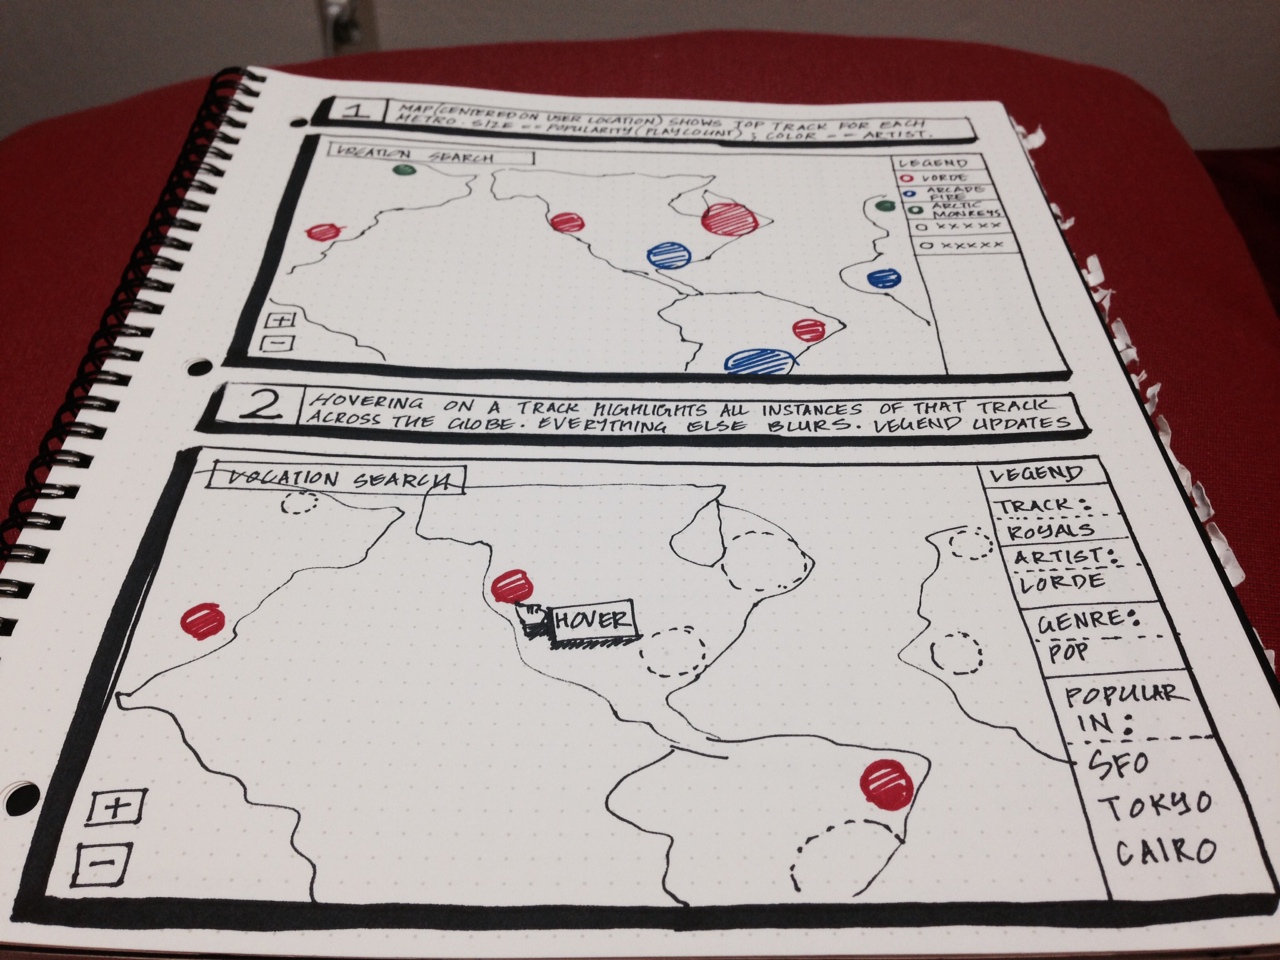 1
MAP (CENTERED ON USER LOCATION) SHOWS TOP TRACK FOR EACH
METRO. SIZE == POPULARITY (PLAYCOUNT); COLOR == ARTIST.
LOCATION SEARCH
LEGEND
LORDE
ARCADE
FIRE
ARCTIC
MONKEYS
XXXXX
XXXXX
+
-
2
HOVERING ON A TRACK HIGHLIGHTS ALL INSTANCES OF THAT TRACK
ACROSS THE GLOBE. EVERYTHING ELSE BLURS. LEGEND UPDATES
LOCATION SEARCH
HOVER
+
-
LEGEND
TRACK:
ROYALS
ARTIST:
LORDE
GENRE:
POP
POPULAR
IN:
SFO
TOKYO
CAIRO